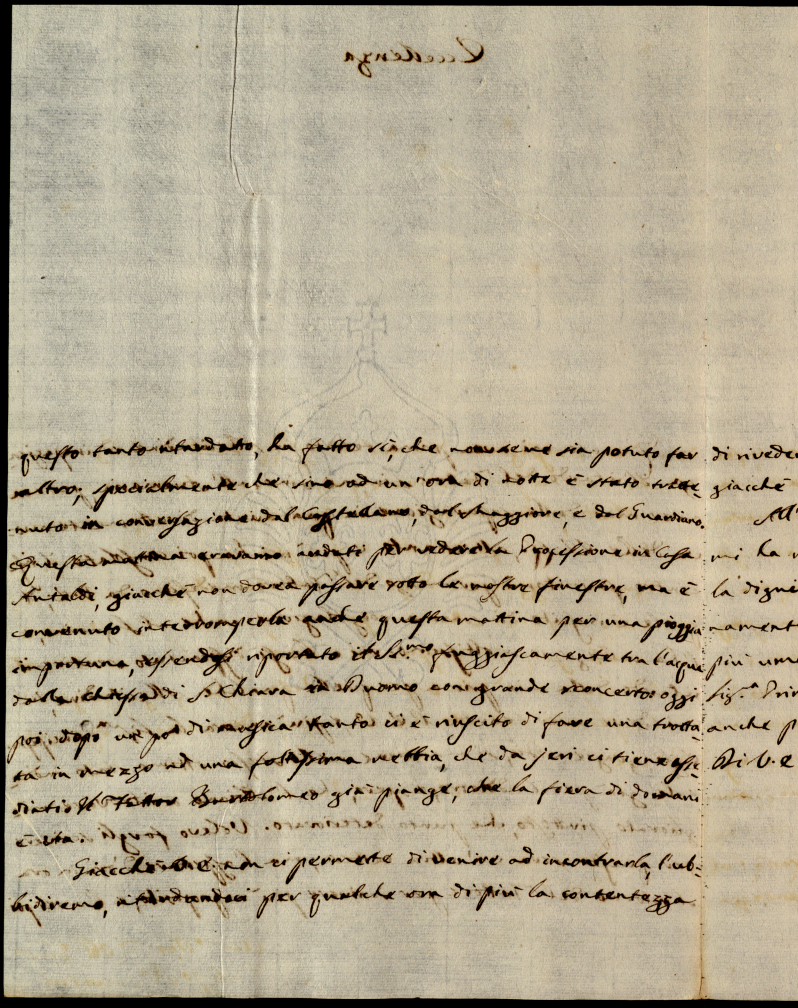 questo tanto ritardato, ha fatto sì, che non se ne sia potuto far
altro, specialmente che sino ad un'ora di notte è stato tratte-
nuto in conversazione dal Castellano, dal Maggiore, e dal Guardiano.
Questa mattina eravamo andati per vedere la Processione in Casa
Antaldi, giacchè non dovea passare sotto le nostre finestre, ma è
convenuto interromperla anche questa mattina per una pioggia
importuna, essendosi riportato il SS.mo fuggiascamente tra l'acqua
dalla Chiesa di S. Chiara in Duomo con grande sconcerto: oggi
poi dopo un po' di musica tanto ci è riuscito di fare una trotta-
ta in mezzo ad una foltissima nebbia, che da jeri ci tiene asse-
diati. Il Fattor Bartolomeo già piange, che la fiera di domani
è ita.
Giacchè V. E. non ci permette di venire ad incontrarla, l'ub-
bidiremo, ritardandoci per qualche ora di più la contentezza
di rivede
giacchè
All'
mi ha
la digni
nament
più um
Sig.a Prin
anche p
Di V. E